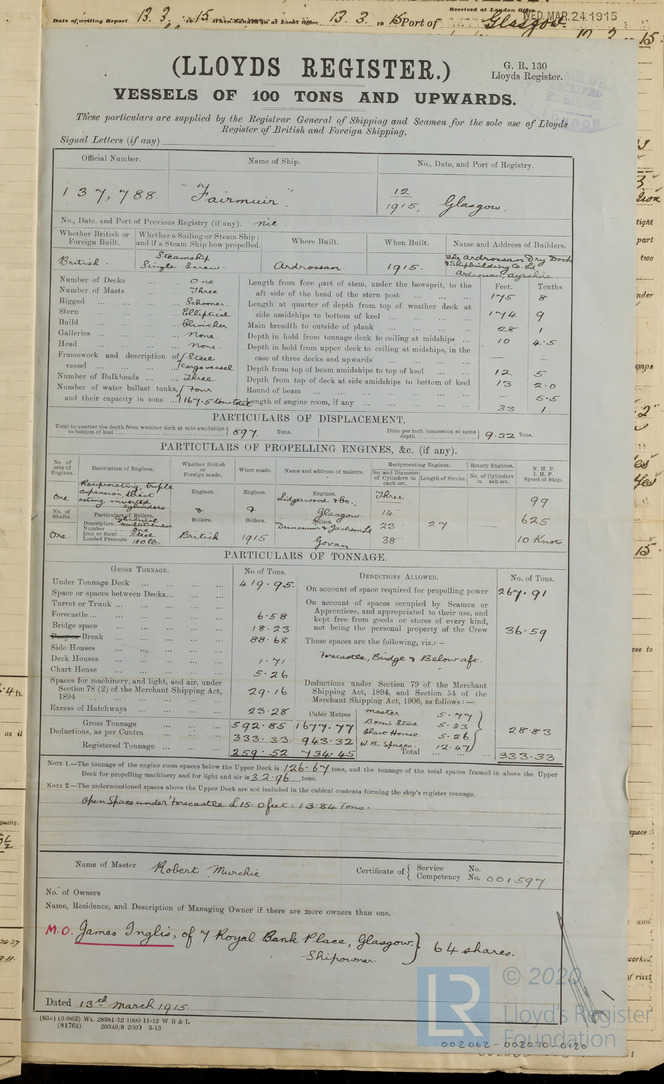 Date of writing Report 13.3.1915 When handed in at Local Office 13.3.1915 Port of Glasgow
Received at London Office WED. MAR. 24 1915
(LLOYDS REGISTER.)
G. R. 130
Lloyds Register.
VESSELS OF 100 TONS AND UPWARDS.
These particulars are supplied by the Registrar General of Shipping and Seamen for the sole use of Lloyds
Register of British and Foreign Shipping.
Signal Letters (if any)
Official Number. Name of Ship. No., Date, and Port of Registry.
137,788 "Fairmuir" 12 1915, Glasgow
No., Date, and Port of Previous Registry (if any). nil
Whether British or Foreign Built. Whether a Sailing or Steam Ship; and if a Steam Ship how propelled. Where Built. When Built. Name and Address of Builders.
British Steamship Single Screw Ardrossan 1915. The Ardrossan Dry Dock & Shipbuilding Co. Ltd Ardrossan, Ayrshire
Number of Decks ... One
Number of Masts ... Three
Rigged ... Schooner
Stern ... Elliptical
Build ... Clincher
Galleries ... None
Head ... None
Framework and description of vessel ... Steel Cargo vessel
Number of Bulkheads ... Three
Number of water ballast tanks, and their capacity in tons ... Four 167.5 tons
Feet. Tenths
Length from fore part of stem, under the bowsprit, to the
aft side of the head of the stern post ... 175 8
Length at quarter of depth from top of weather deck at
side amidships to bottom of keel ... 174 9
Main breadth to outside of plank ... 28 1
Depth in hold from tonnage deck to ceiling at midships ... 10 4.5
Depth in hold from upper deck to ceiling at midships, in the
case of three decks and upwards ... — —
Depth from top of beam amidships to top of keel ... 12 5
Depth from top of deck at side amidships to bottom of keel 13 2.0
Round of beam ... — 5.5
Length of engine room, if any ... 33 1
PARTICULARS OF DISPLACEMENT.
Total to quarter the depth from weather deck at side amidships to bottom of keel 597. Tons. Ditto per inch immersion at same depth 9.32 Tons.
PARTICULARS OF PROPELLING ENGINES, &c. (if any).
No. of sets of Engines. Description of Engines. Whether British or Foreign made. When made. Name and address of makers. Reciprocating Engines. Rotary Engines. N. H. P. I. H. P. Speed of Ship.
No. and Diameter of Cylinders in each set. Length of Stroke. No. of Cylinders in each set.
One Reciprocating, triple expansion, direct acting inverted cylinders
Engines. Engines. Engines.
Glasgow
Three 14 23 38 27 — 99 625 10 Knots
No. of Shafts. Particulars of Boilers.
Description Cylindrical multitubular
Number One
Iron or Steel Steel
Loaded Pressure 180 lb.
One. Boilers. British Boilers. 1915 Boilers. Jackson Ld Govan
PARTICULARS OF TONNAGE.
GROSS TONNAGE. No of Tons.
Under Tonnage Deck ... 419.95
Space or spaces between Decks ...
Turret or Trunk ...
Forecastle ... 6.58
Bridge space ... 18.23
Break ... 88.68
Side Houses ...
Deck Houses ... 1.71
Chart House ... 5.26
Spaces for machinery, and light, and air, under
Section 78 (2) of the Merchant Shipping Act,
1894 ... 29.16
Excess of Hatchways ... 23.28
Cubic Metres
Gross Tonnage 592.85 1677.77
Deductions, as per Contra 333.33 943.32
Registered Tonnage 259.52 734.45
DEDUCTIONS ALLOWED. No. of Tons.
On account of space required for propelling power 267.91
On account of spaces occupied by Seamen or
Apprentices, and appropriated to their use, and
kept free from goods or stores of every kind,
not being the personal property of the Crew 36.59
These spaces are the following, viz.:—
Forecastle, Bridge & Below aft.
Deductions under Section 79 of the Merchant
Shipping Act, 1894, and Section 54 of the
Merchant Shipping Act, 1906, as follows:—
Master 5.77
Bosn's Store 5.33
Chart House 5.26
W.B. Space 12.47
28.83
Total 333.33
NOTE 1.—The tonnage of the engine room spaces below the Upper Deck is 126.67 tons, and the tonnage of the total spaces framed in above the Upper
Deck for propelling machinery and for light and air is 32.96 tons.
NOTE 2.—The undermentioned spaces above the Upper Deck are not included in the cubical contents forming the ship's register tonnage.
Open Space under Forecastle 15.0 feet = 13.84 Tons.
Name of Master Robert Murchie Certificate of { Service No. Competency No. 001597
No. of Owners
Name, Residence, and Description of Managing Owner if there are more owners than one.
M.O. James Inglis, of 7 Royal Bank Place, Glasgow. } 64 shares.
Shipowner
Dated 13th March 1915
(83o) (6.862) Wt. 28981/72 1000 11-12 W B & L
(81762) 20349/8 2000 3-13
© 2020
LR Lloyd's Register
Foundation
002062-002070-0120